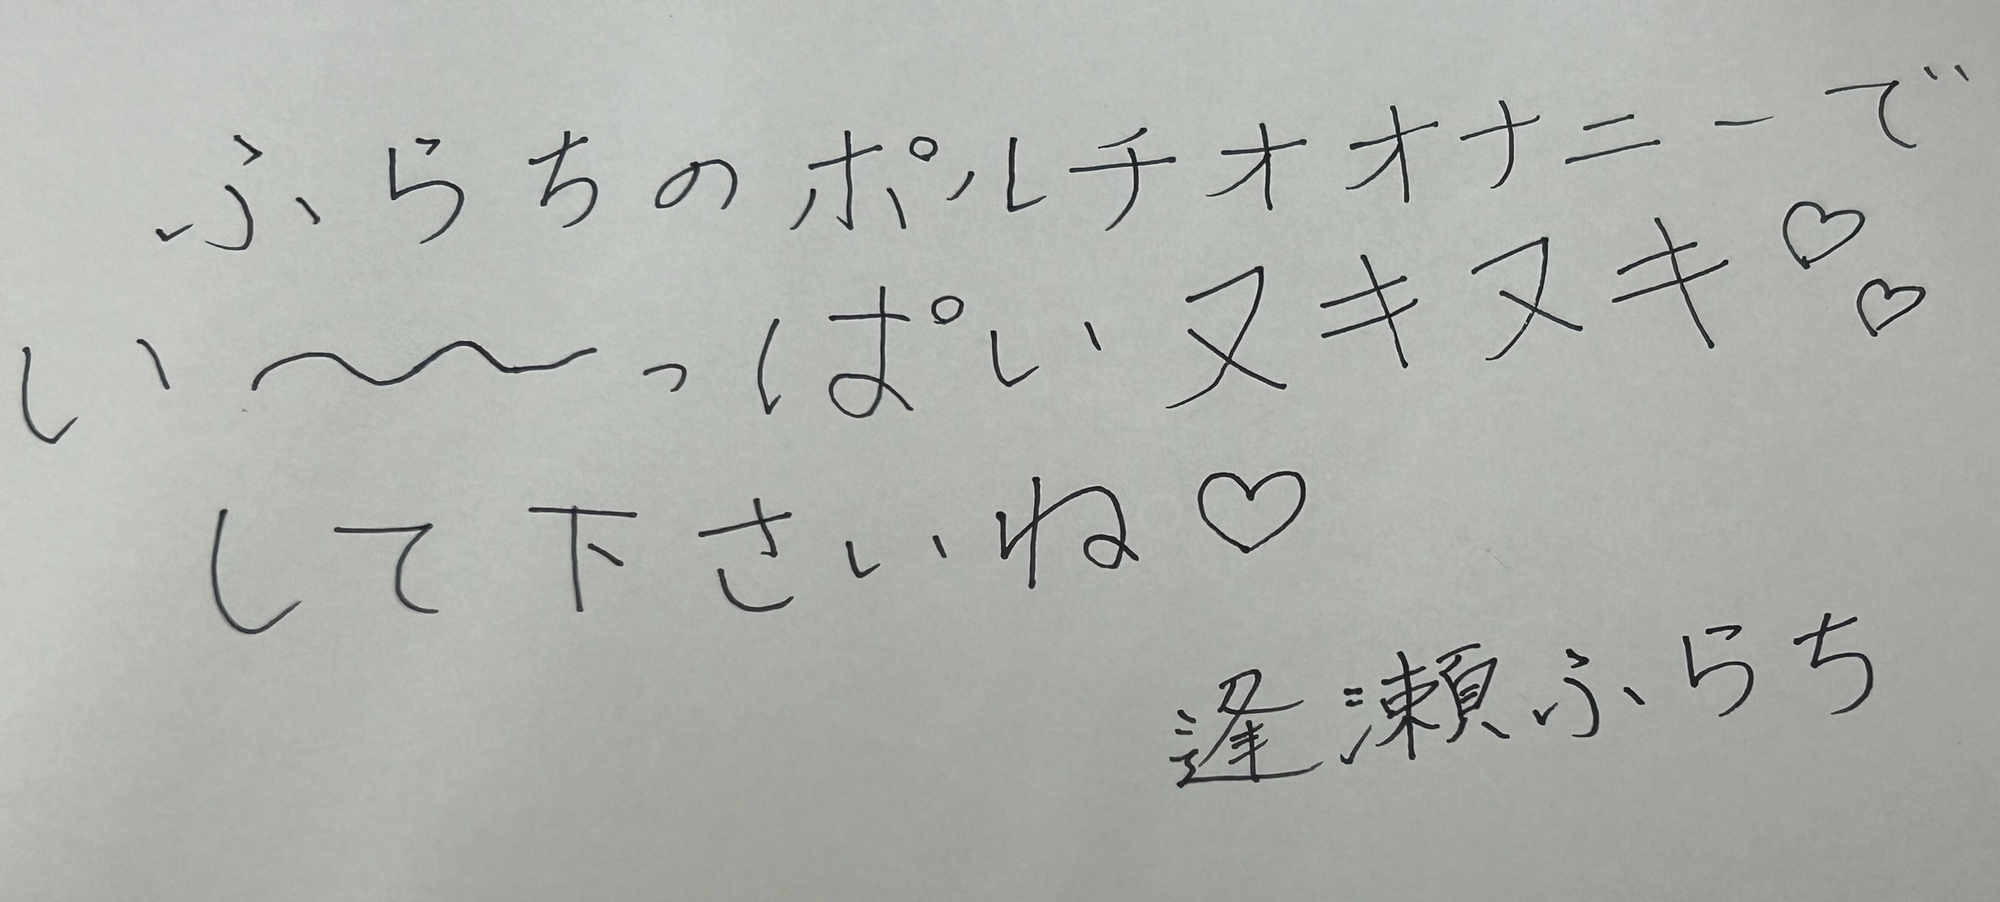 ふらちのポルチオオナニーで
い〜〜っぱいヌキヌキ♡♡
して下さいね♡
逢瀬ふらち